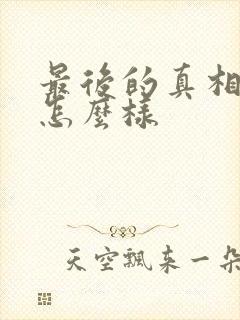 最後的真相
怎麼樣
天空飄来一朵